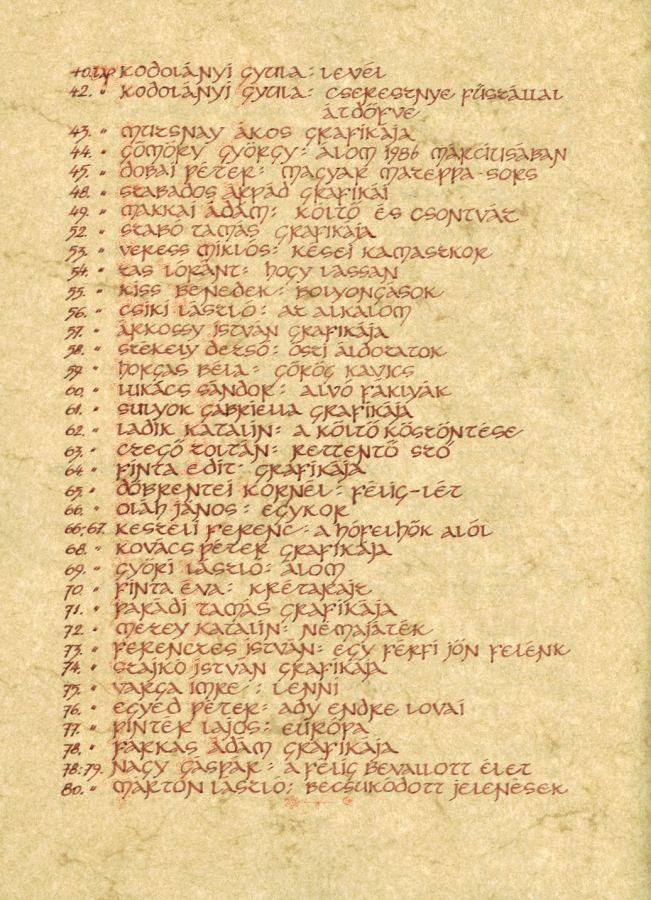 40. lap Kodolányi Gyula: Levél
42. " Kodolányi Gyula: Cseresznye fűszállal
átdöfve
43. " Muzsnay Ákos grafikája
44. " Gömöry György: Álom 1986 márciusában
45. " Dobai Péter: Magyar Mazeppa-sors
48. " Szabados Árpád grafikái
49. " Makkai Ádám: Költő és csontváz
52. " Szabó Tamás grafikája
53. " Veress Miklós: Kései kamaszkor
54. " Tas Lóránt: Hogy lassan
55. " Kiss Benedek: Bolyongások
56. " Csiki László: Az alkalom
57. " Árkossy István grafikája
58. " Székely Dezső: Ősi áldozatok
59. " Horgas Béla: Görög kavics
60. " Lukács Sándor: Alvó fáklyák
61. " Sulyok Gabriella grafikája
62. " Ladik Katalin: A költő köszöntése
63. " Czegő Zoltán: Rettentő szó
64. " Finta Edit grafikája
65. " Döbrentei Kornél: Félig-lét
66. " Oláh János: Egykor
66;67. Keszéli Ferenc: A hófelhők alól
68. " Kovács Péter grafikája
69. " Győri László: Álom
70. " Finta Éva: Krétarajz
71. " Parádi Tamás grafikája
72. " Mezey Katalin: Némajáték
73. " Ferenczes István: Egy férfi jön felénk
74. " Szajkó István grafikája
75. " Varga Imre: Lenni
76. " Egyed Péter: Ady Endre lovai
77. " Pintér Lajos: Európa
78. " Farkas Ádám grafikája
78;79. Nagy Gáspár: A félig bevallott élet
80. " Márton László: Becsukódott jelenések